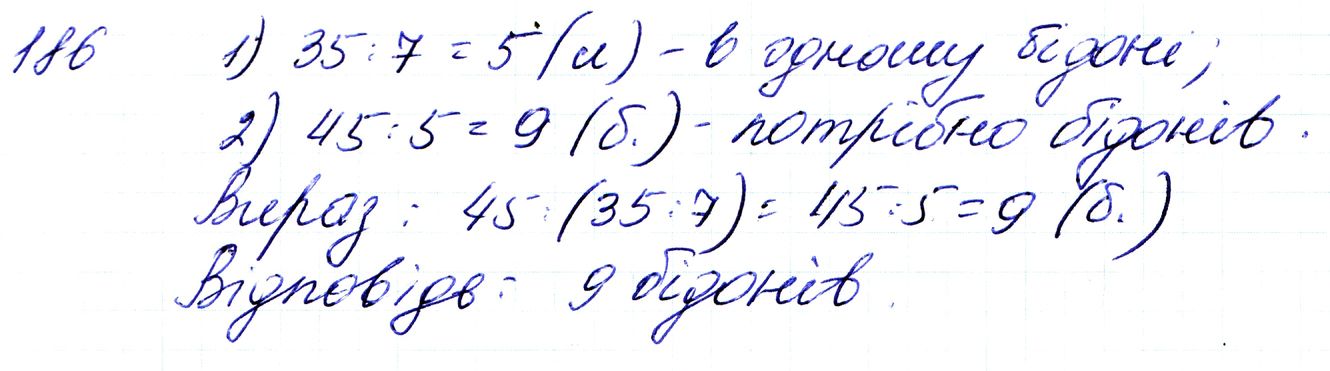 186 1) 35:7=5 (л) – в одному бідоні;
2) 45:5=9 (б.) – потрібно бідонів.
Вираз: 45:(35:7)=45:5=9 (б.)
Відповідь: 9 бідонів.